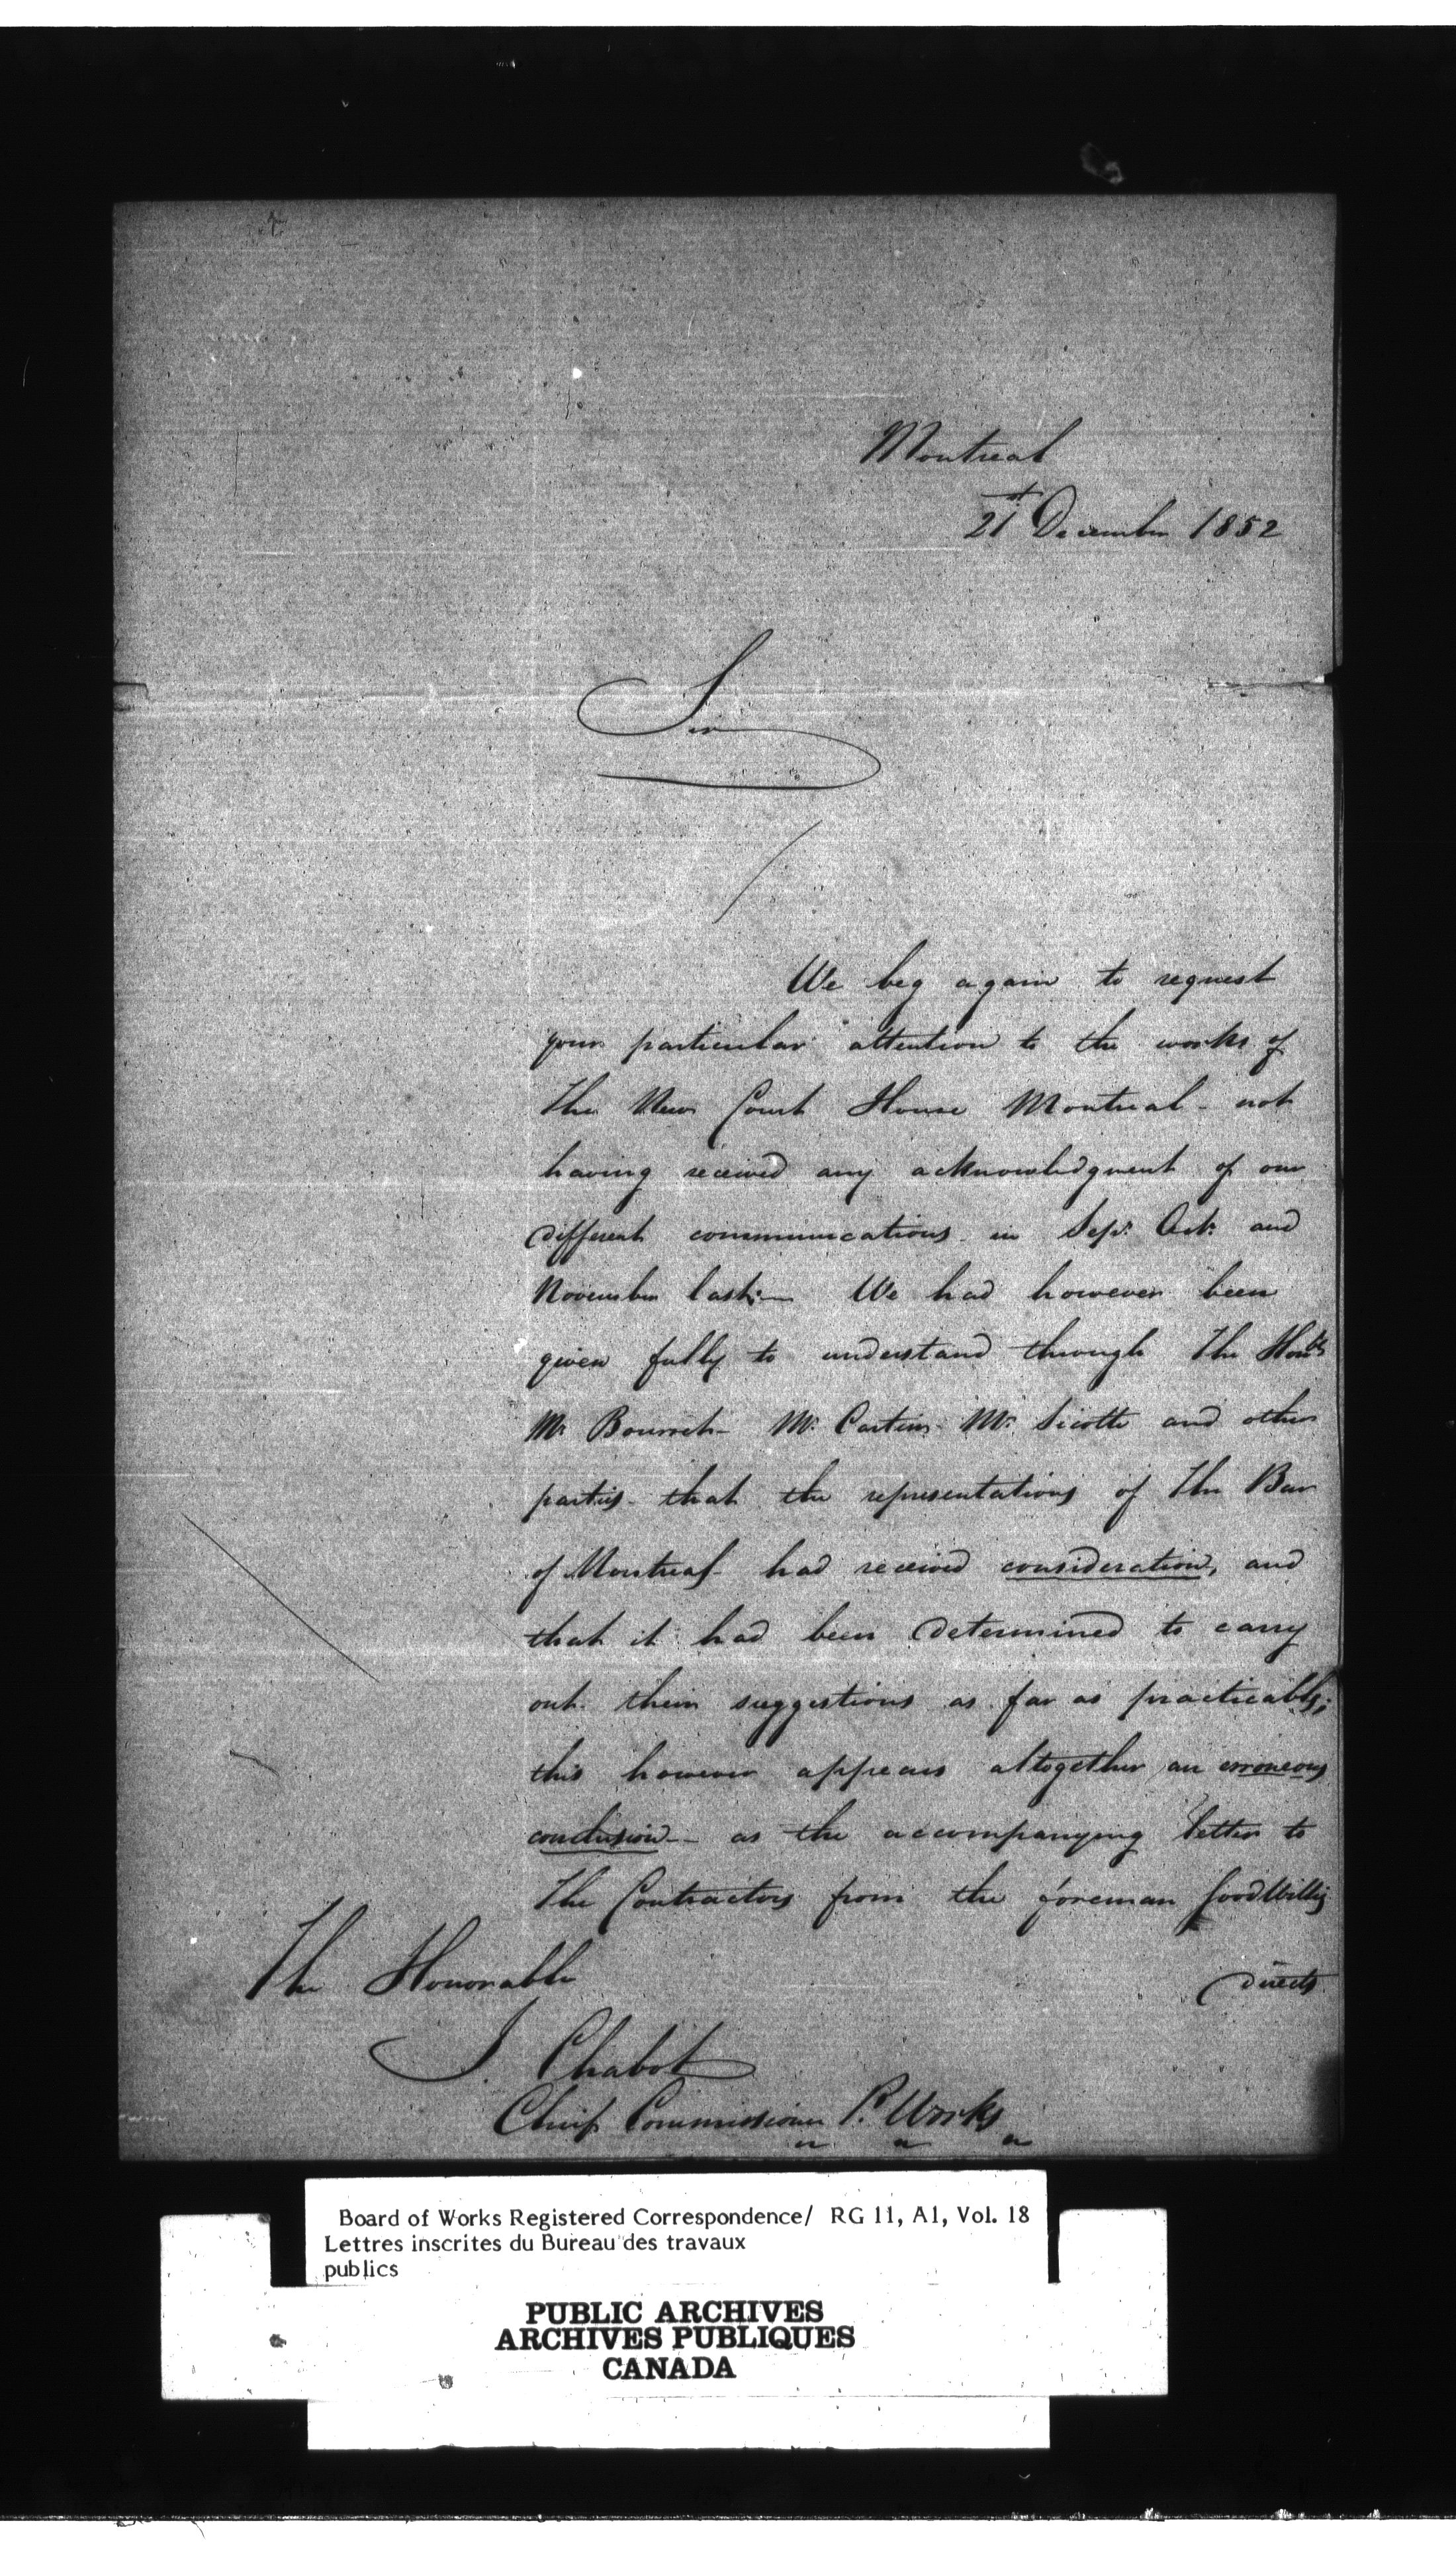 Montreal
21st December 1852
Sir
We beg again to request
your particular attention to the works of
The New Court House Montreal - not
having received any acknowledgment of our
different communications in Sepr. Octr. and
November last;— We had however been
given fully to understand through The Honble
Mr Bourret - Mr. Cartier - Mr. Sicotte and other
parties - that the representations of The Bar
of Montreal had received consideration, and
that it had been determined to carry
out their suggestions as far as practicable;
this however appears altogether an erroneous
conclusion - as the accompanying letter to
The Contractors from the foreman
directs
The Honorable
J. Chabot
Chief Commissioner P. Works
Board of Works Registered Correspondence/ RG 11, A1, Vol. 18
Lettres inscrites du Bureau des travaux
publics
PUBLIC ARCHIVES
ARCHIVES PUBLIQUES
CANADA